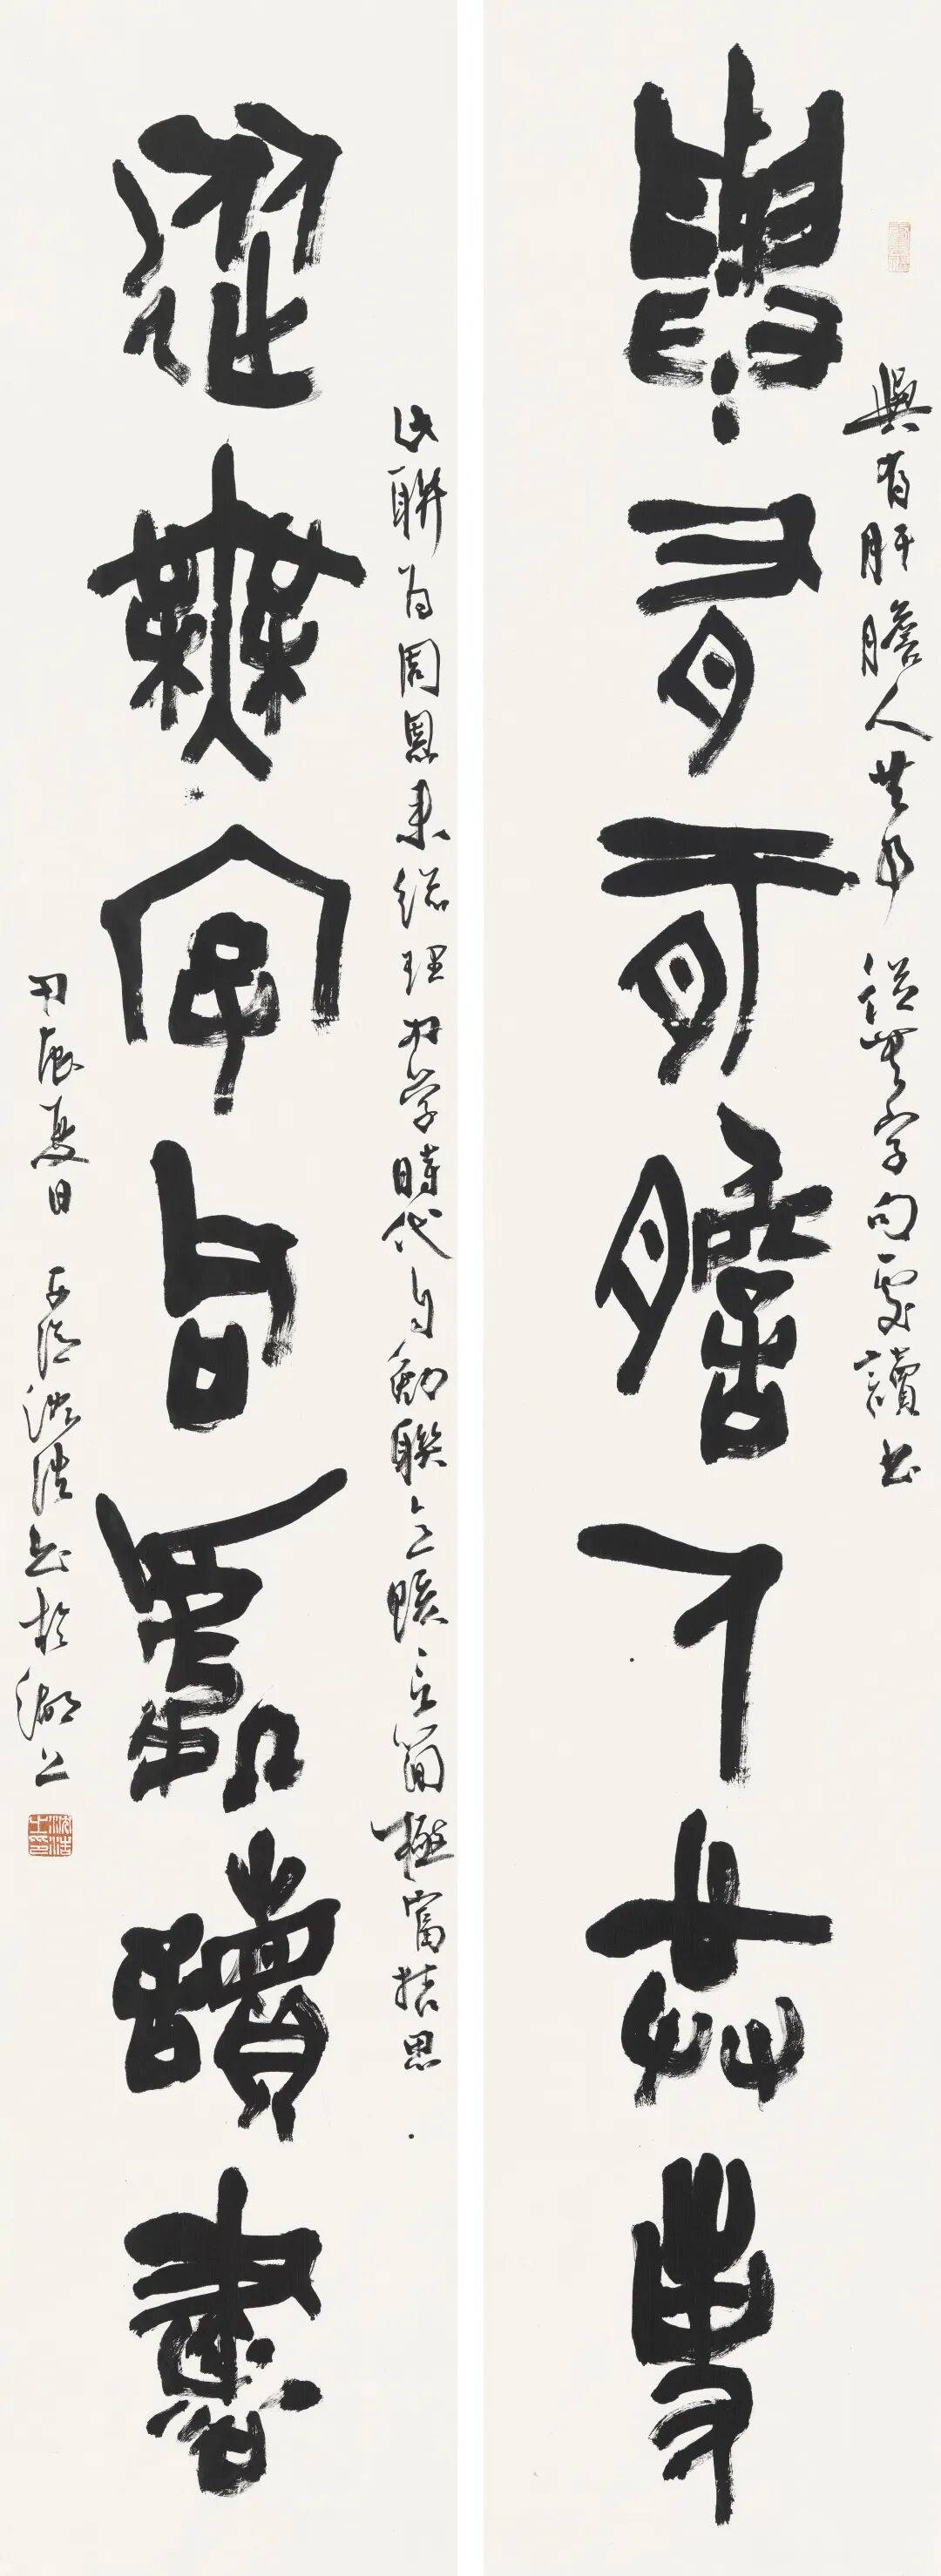 與有肝膽人共事
與有肝膽人共事 從無字句處讀書
從無字句處讀書
此聯為周恩來總理求学時代自勉聯立賅言簡極富哲思
甲辰夏日 沈浩书於湖上
沈浩之印